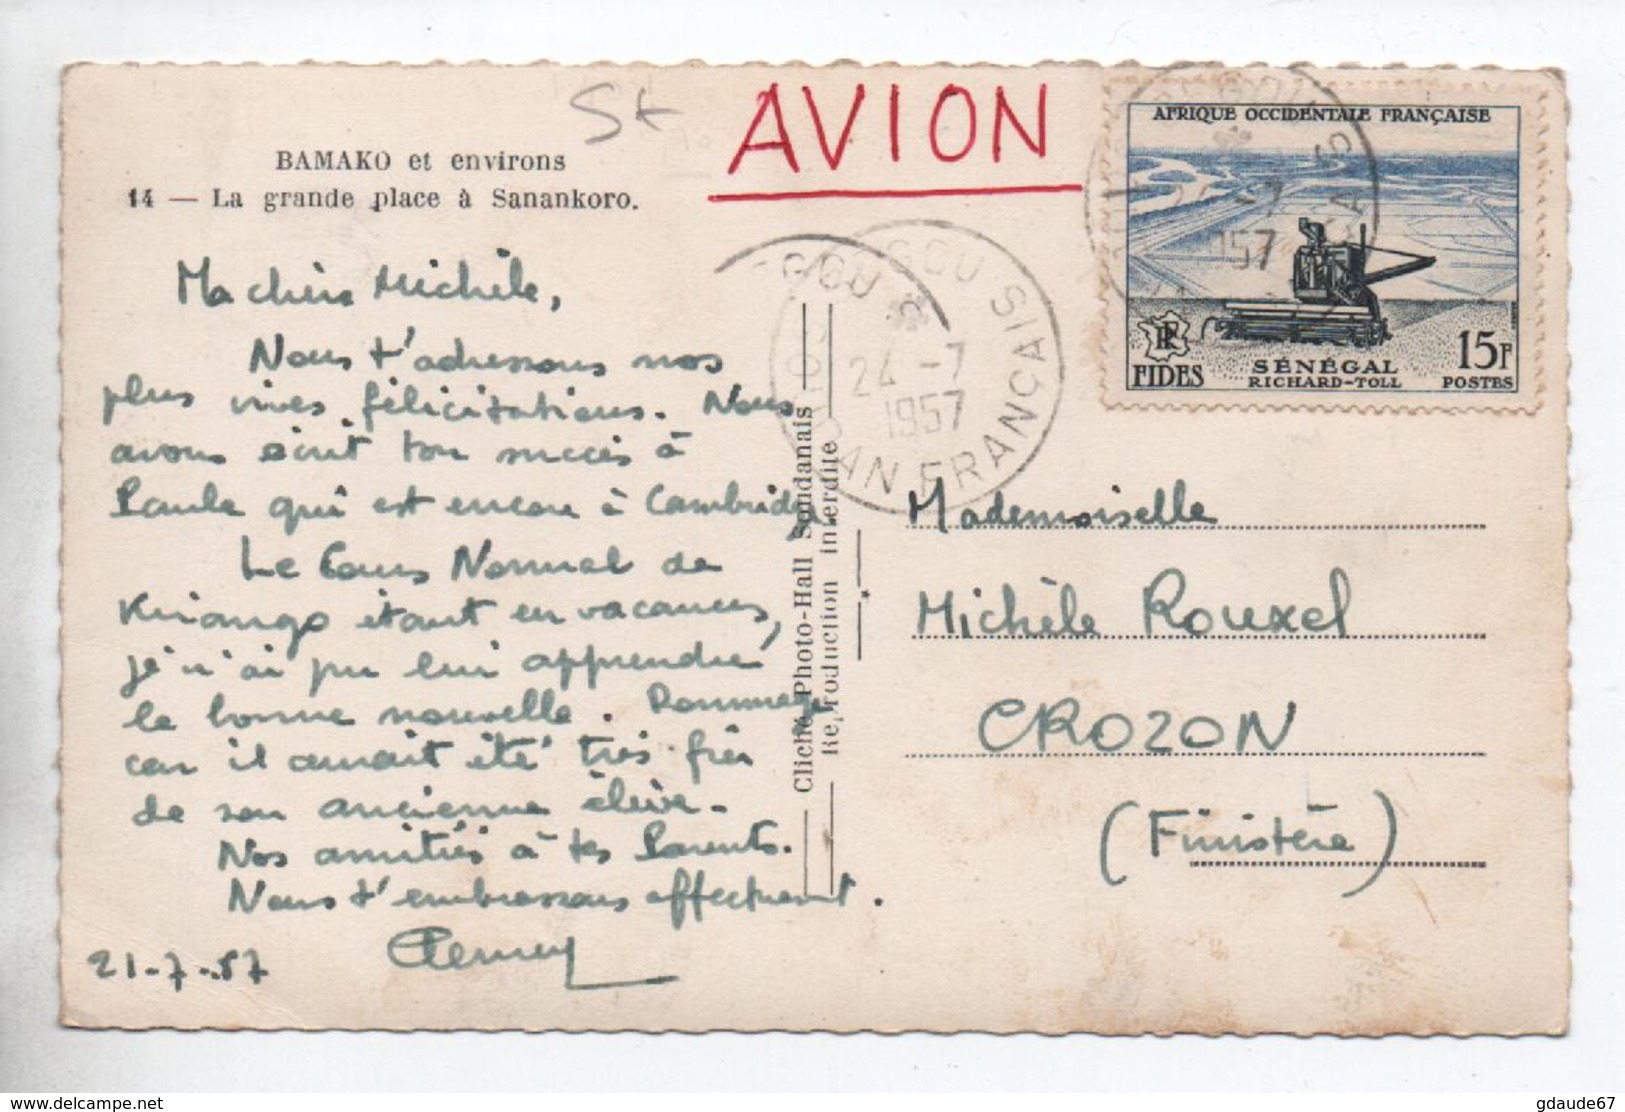 St
AVION
BAMAKO et environs
14 — La grande place à Sanankoro.
AFRIQUE OCCIDENTALE FRANÇAISE
RF
FIDES
SÉNÉGAL
RICHARD-TOLL
15F
POSTES
24 -7
1957
SOUDAN FRANÇAIS
Ma chère Michèle,
Nous t'adressons nos
plus vives félicitations. Nous
avons écrit ton succès à
Paule qui est encore à Cambridge
Le Cours Normal de
étant en vacances,
je n'ai pu lui apprendre
la bonne nouvelle. Dommage
car il aurait été très fier
de son ancienne élève.
Nos amitiés à tes Parents.
Nous t'embrassons affectueusement.
21-7-57
Cliché Photo-Hall Soudanais
Reproduction interdite
Mademoiselle
Michèle Rouxel
CROZON
(Finistère)
delcampe.net
gdaude67